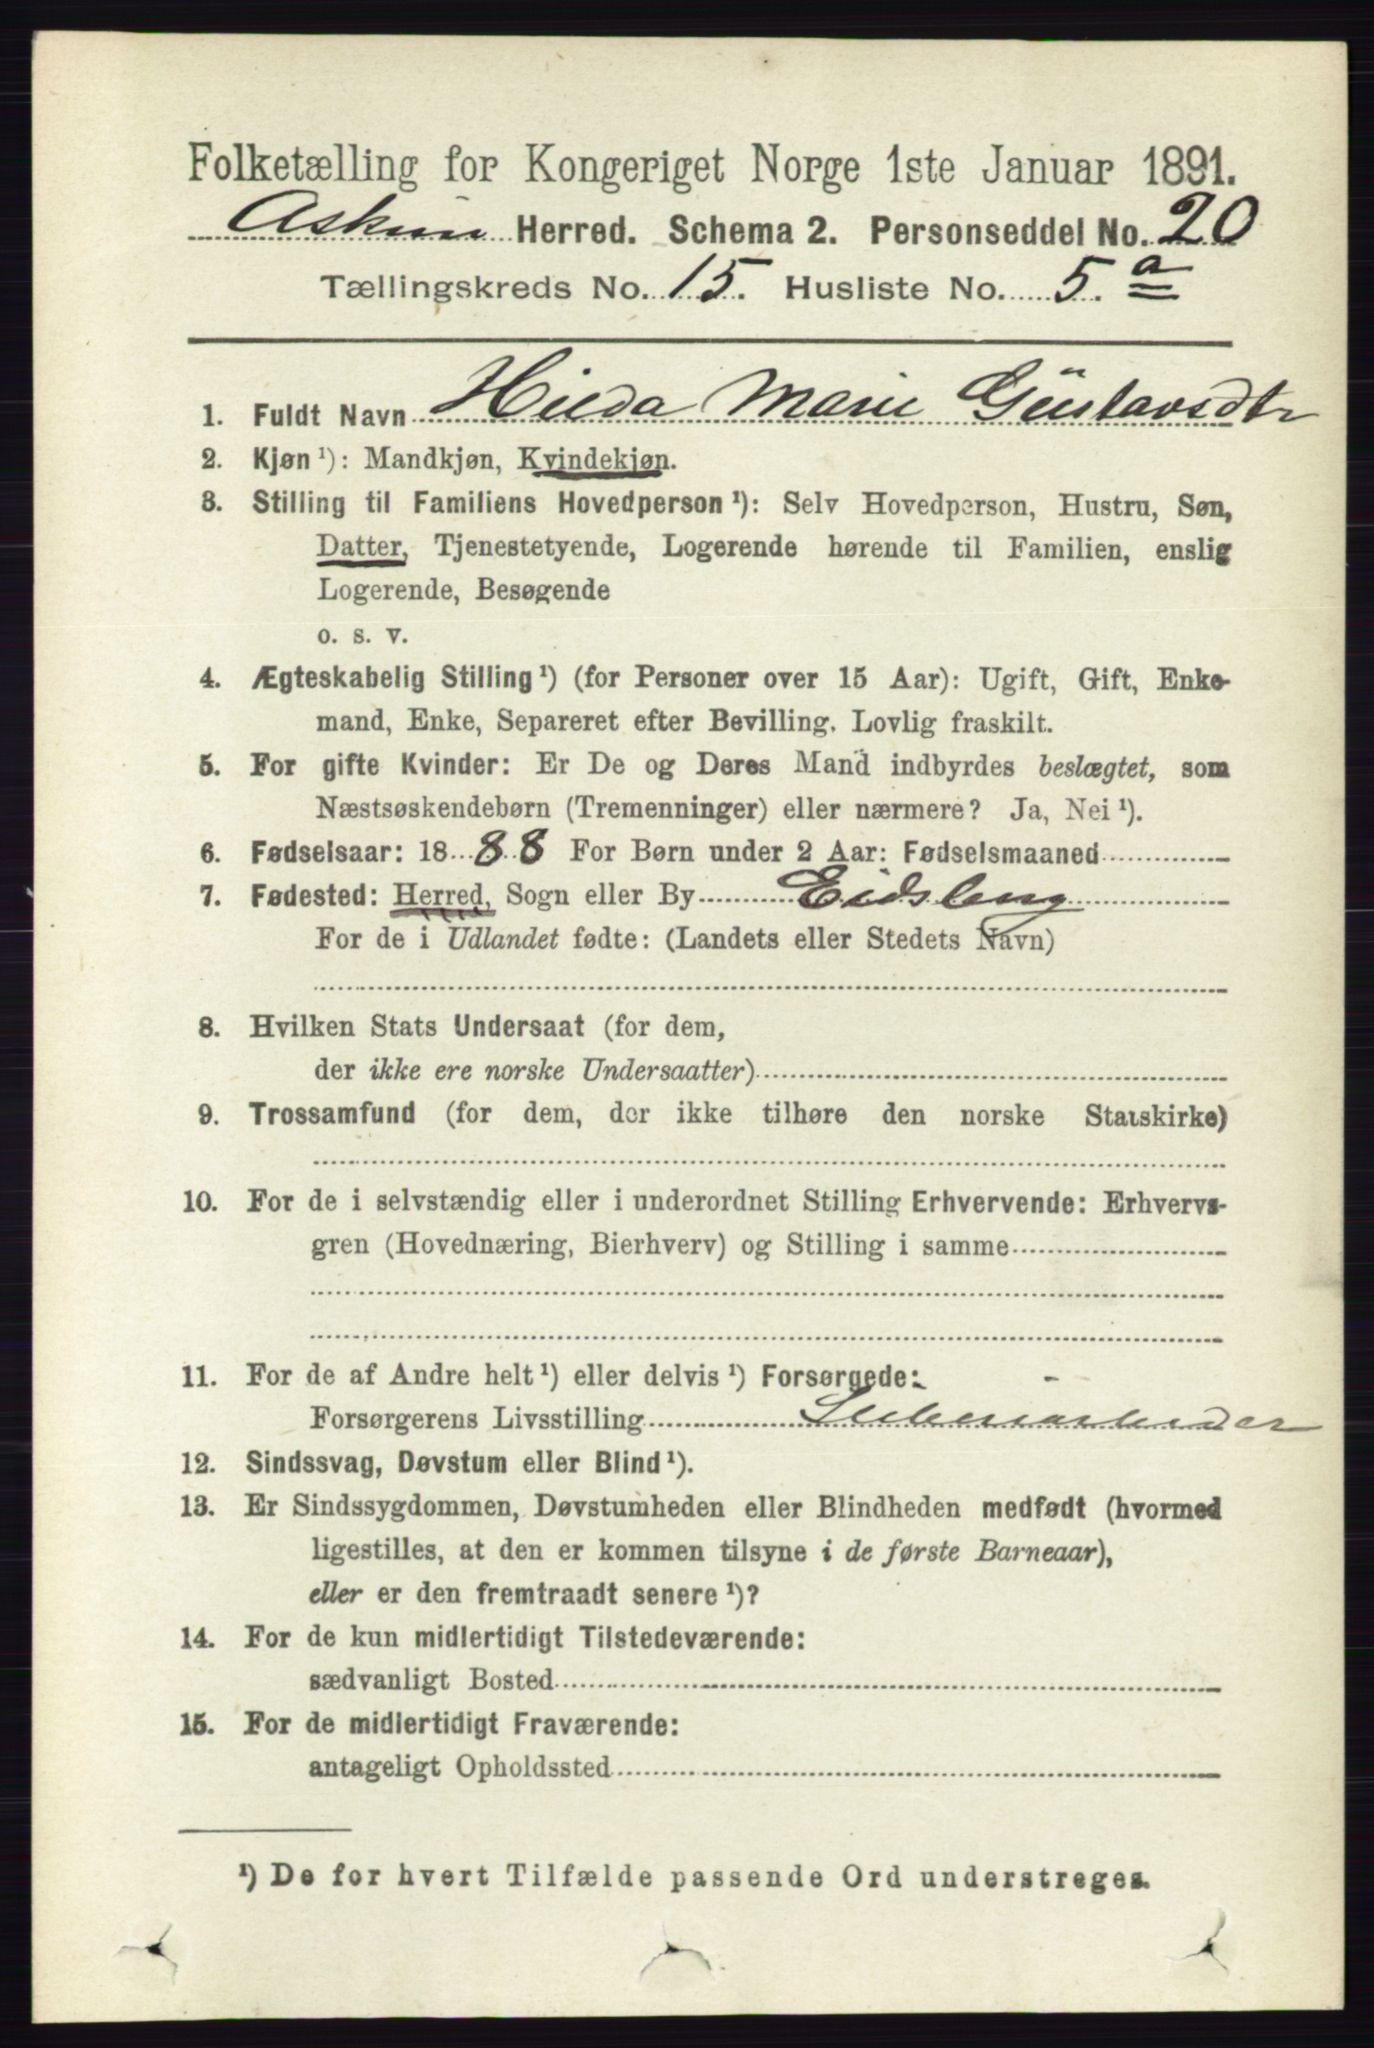 Folketælling for Kongeriget Norge 1ste Januar 1891.
Askim Herred. Schema 2. Personseddel No. 20
Tællingskreds No. 15. Husliste No. 5. a
1. Fuldt Navn Hilda Marie Gustavsdtr
2. Kjøn ¹): Mandkjøn, Kvindekjøn.
3. Stilling til Familiens Hovedperson ¹): Selv Hovedperson, Hustru, Søn,
Datter, Tjenestetyende, Logerende hørende til Familien, enslig
Logerende, Besøgende
o. s. v.
4. Ægteskabelig Stilling ¹) (for Personer over 15 Aar): Ugift, Gift, Enke-
mand, Enke, Separeret efter Bevilling. Lovlig fraskilt.
5. For gifte Kvinder: Er De og Deres Mand indbyrdes beslægtet, som
Næstsøskendebørn (Tremenninger) eller nærmere? Ja, Nei ¹).
6. Fødselsaar: 1888 For Børn under 2 Aar: Fødselsmaaned
7. Fødested: Herred, Sogn eller By Eidsberg
For de i Udlandet fødte: (Landets eller Stedets Navn)
8. Hvilken Stats Undersaat (for dem,
der ikke ere norske Undersaatter)
9. Trossamfund (for dem, der ikke tilhøre den norske Statskirke)
10. For de i selvstændig eller i underordnet Stilling Erhvervende: Erhvervs-
gren (Hovednæring, Bierhverv) og Stilling i samme
11. For de af Andre helt ¹) eller delvis ¹) Forsørgede:
Forsørgerens Livsstilling
12. Sindssvag, Døvstum eller Blind ¹).
13. Er Sindssygdommen, Døvstumheden eller Blindheden medfødt (hvormed
ligestilles, at den er kommen tilsyne i de første Barneaar),
eller er den fremtraadt senere ¹)?
14. For de kun midlertidigt Tilstedeværende:
sædvanligt Bosted
15. For de midlertidigt Fraværende:
antageligt Opholdssted
¹) De for hvert Tilfælde passende Ord understreges.